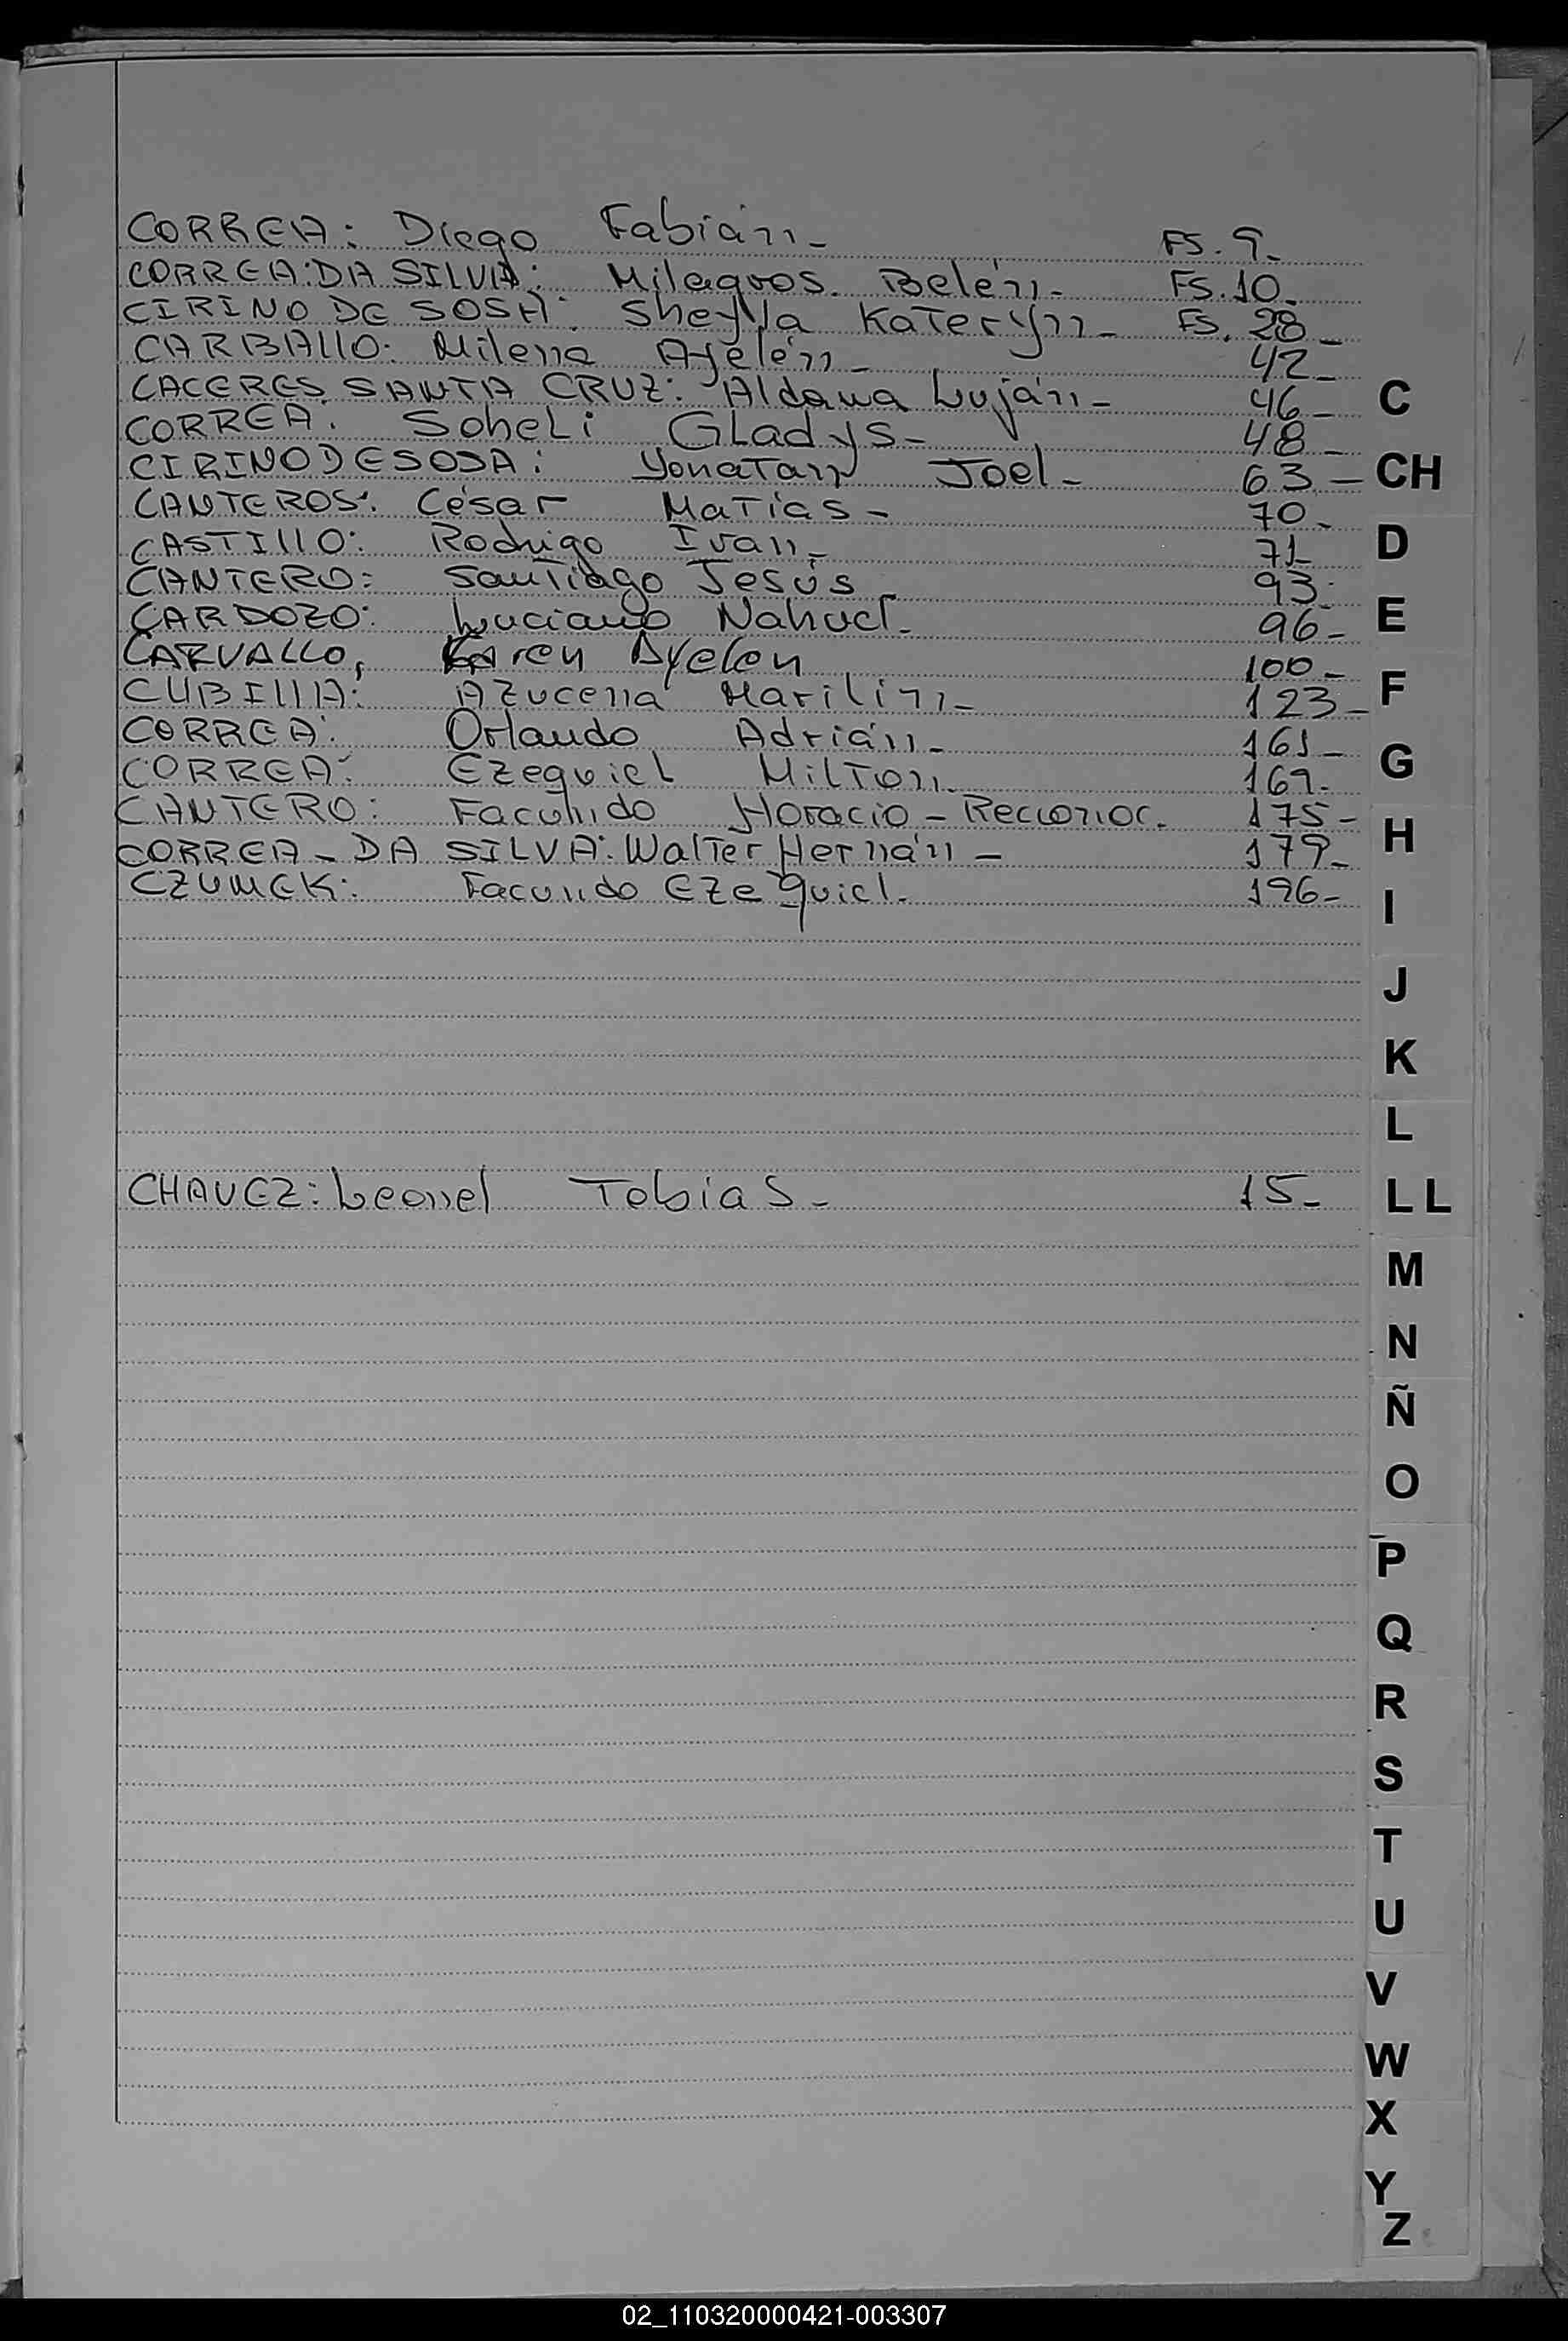 CORREA: Diego Fabián - FS. 9.
CORREA: DA SILVA: Milagros. Belén - FS. 10.
CIRINO DE SOSA: Sheylla Kateryn - FS. 28 -
CARBALLO: Milena Ayelén - 42 -
CACERES SANTA CRUZ: Aldana Luján - 46 -
CORREA: Soheli Gladys - 48 -
CIRINO DE SOSA: Yonatan Joel - 63 -
CANTEROS: César Matías - 70 -
CASTILLO: Rodrigo Ivan - 71 -
CANTERO: Santiago Jesús - 93 -
CARDOZO: Luciano Nahuel - 96 -
CARVALLO, Karen Ayelen 100 -
CUBILLA: Azucena Marilin - 123 -
CORREA: Orlando Adrián - 161 -
CORREA: Ezequiel Milton. 169.
CANTERO: Facundo Horacio - Reconoc. 175 -
CORREA - DA SILVA: Walter Hernán - 179 -
CZUMEK: Facundo Ezequiel. 196 -
CHAVEZ: Leonel Tobias - 15 -
C
CH
D
E
F
G
H
I
J
K
L
LL
M
N
Ñ
O
P
Q
R
S
T
U
V
W
X
Y
Z
02_110320000421-003307